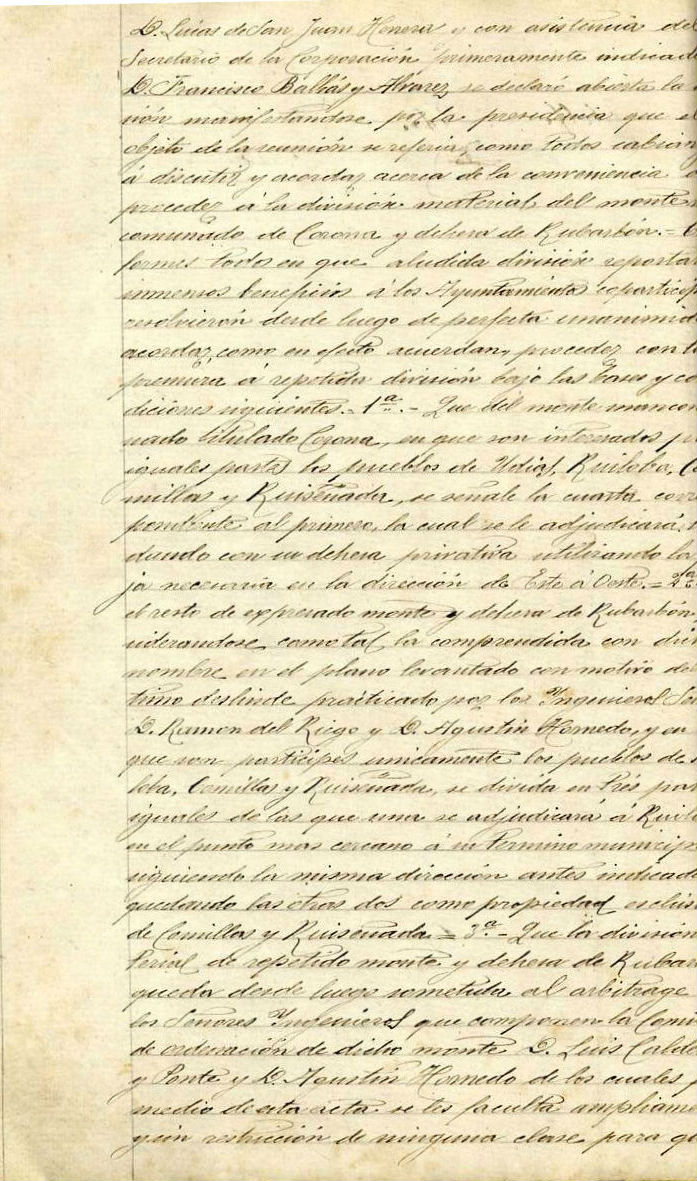 D. Lucas de San Juan Herrera y con asistencia del
Secretario de la Corporación primeramente indicad
D. Francisco Balbás y Alvarez, se declaró abierta la
nión manifestandose por la presidencia que el
objeto de la reunión se referia, como todos sabian,
á discutir y acordar acerca de la conveniencia d
proceder á la división material del monte
comunado de Corona y dehesa de Rubarbón.=
formes todos en que aludida división reportar
inmensos beneficios á los Ayuntamientos coparticip
resolvieron desde luego de perfecta unanimid
acordar, como en efecto acuerdan, proceder con t
premura á repetida división bajo las bases y co
diciones siguientes.- 1ª.- Que del monte mancom
nado titulado Corona, en que son interesados p
iguales partes los pueblos de Udias, Ruiloba, Co
millas y Ruiseñada, se señale la cuarta corr
pondiente al primero, la cual se le adjudicará
dando con su dehesa privativa utilizando la
ja necesaria en la dirección de Este á Oeste.= 2ª
el resto de expresado monte y dehesa de Rubarbón,
siderandose como tal la comprendida con dich
nombre en el plano levantado con motivo del
timo deslinde practicado por los Ingenieros Se
D. Ramon del Riego y D. Agustin Hornedo, y en
que son participes unicamente los pueblos de
loba, Comillas y Ruiseñada, se divida en tres par
iguales de las que una se adjudicará á Ruilo
en el punto mas cercano á su termino municip
siguiendo la misma dirección antes indicada
quedando las otras dos como propiedad exclus
de Comillas y Ruiseñada = 3ª.- Que la división
terial de repetido monte y dehesa de Rubar
queda desde luego sometida al arbitrage
los Señores Ingenieros que componen la Comi
de ordenación de dicho monte D. Luis Calde
y Ponte y D. Agustin Hornedo de los cuales
medio de esta acta se les faculta ampliame
y sin restricción de ninguna clase para qu